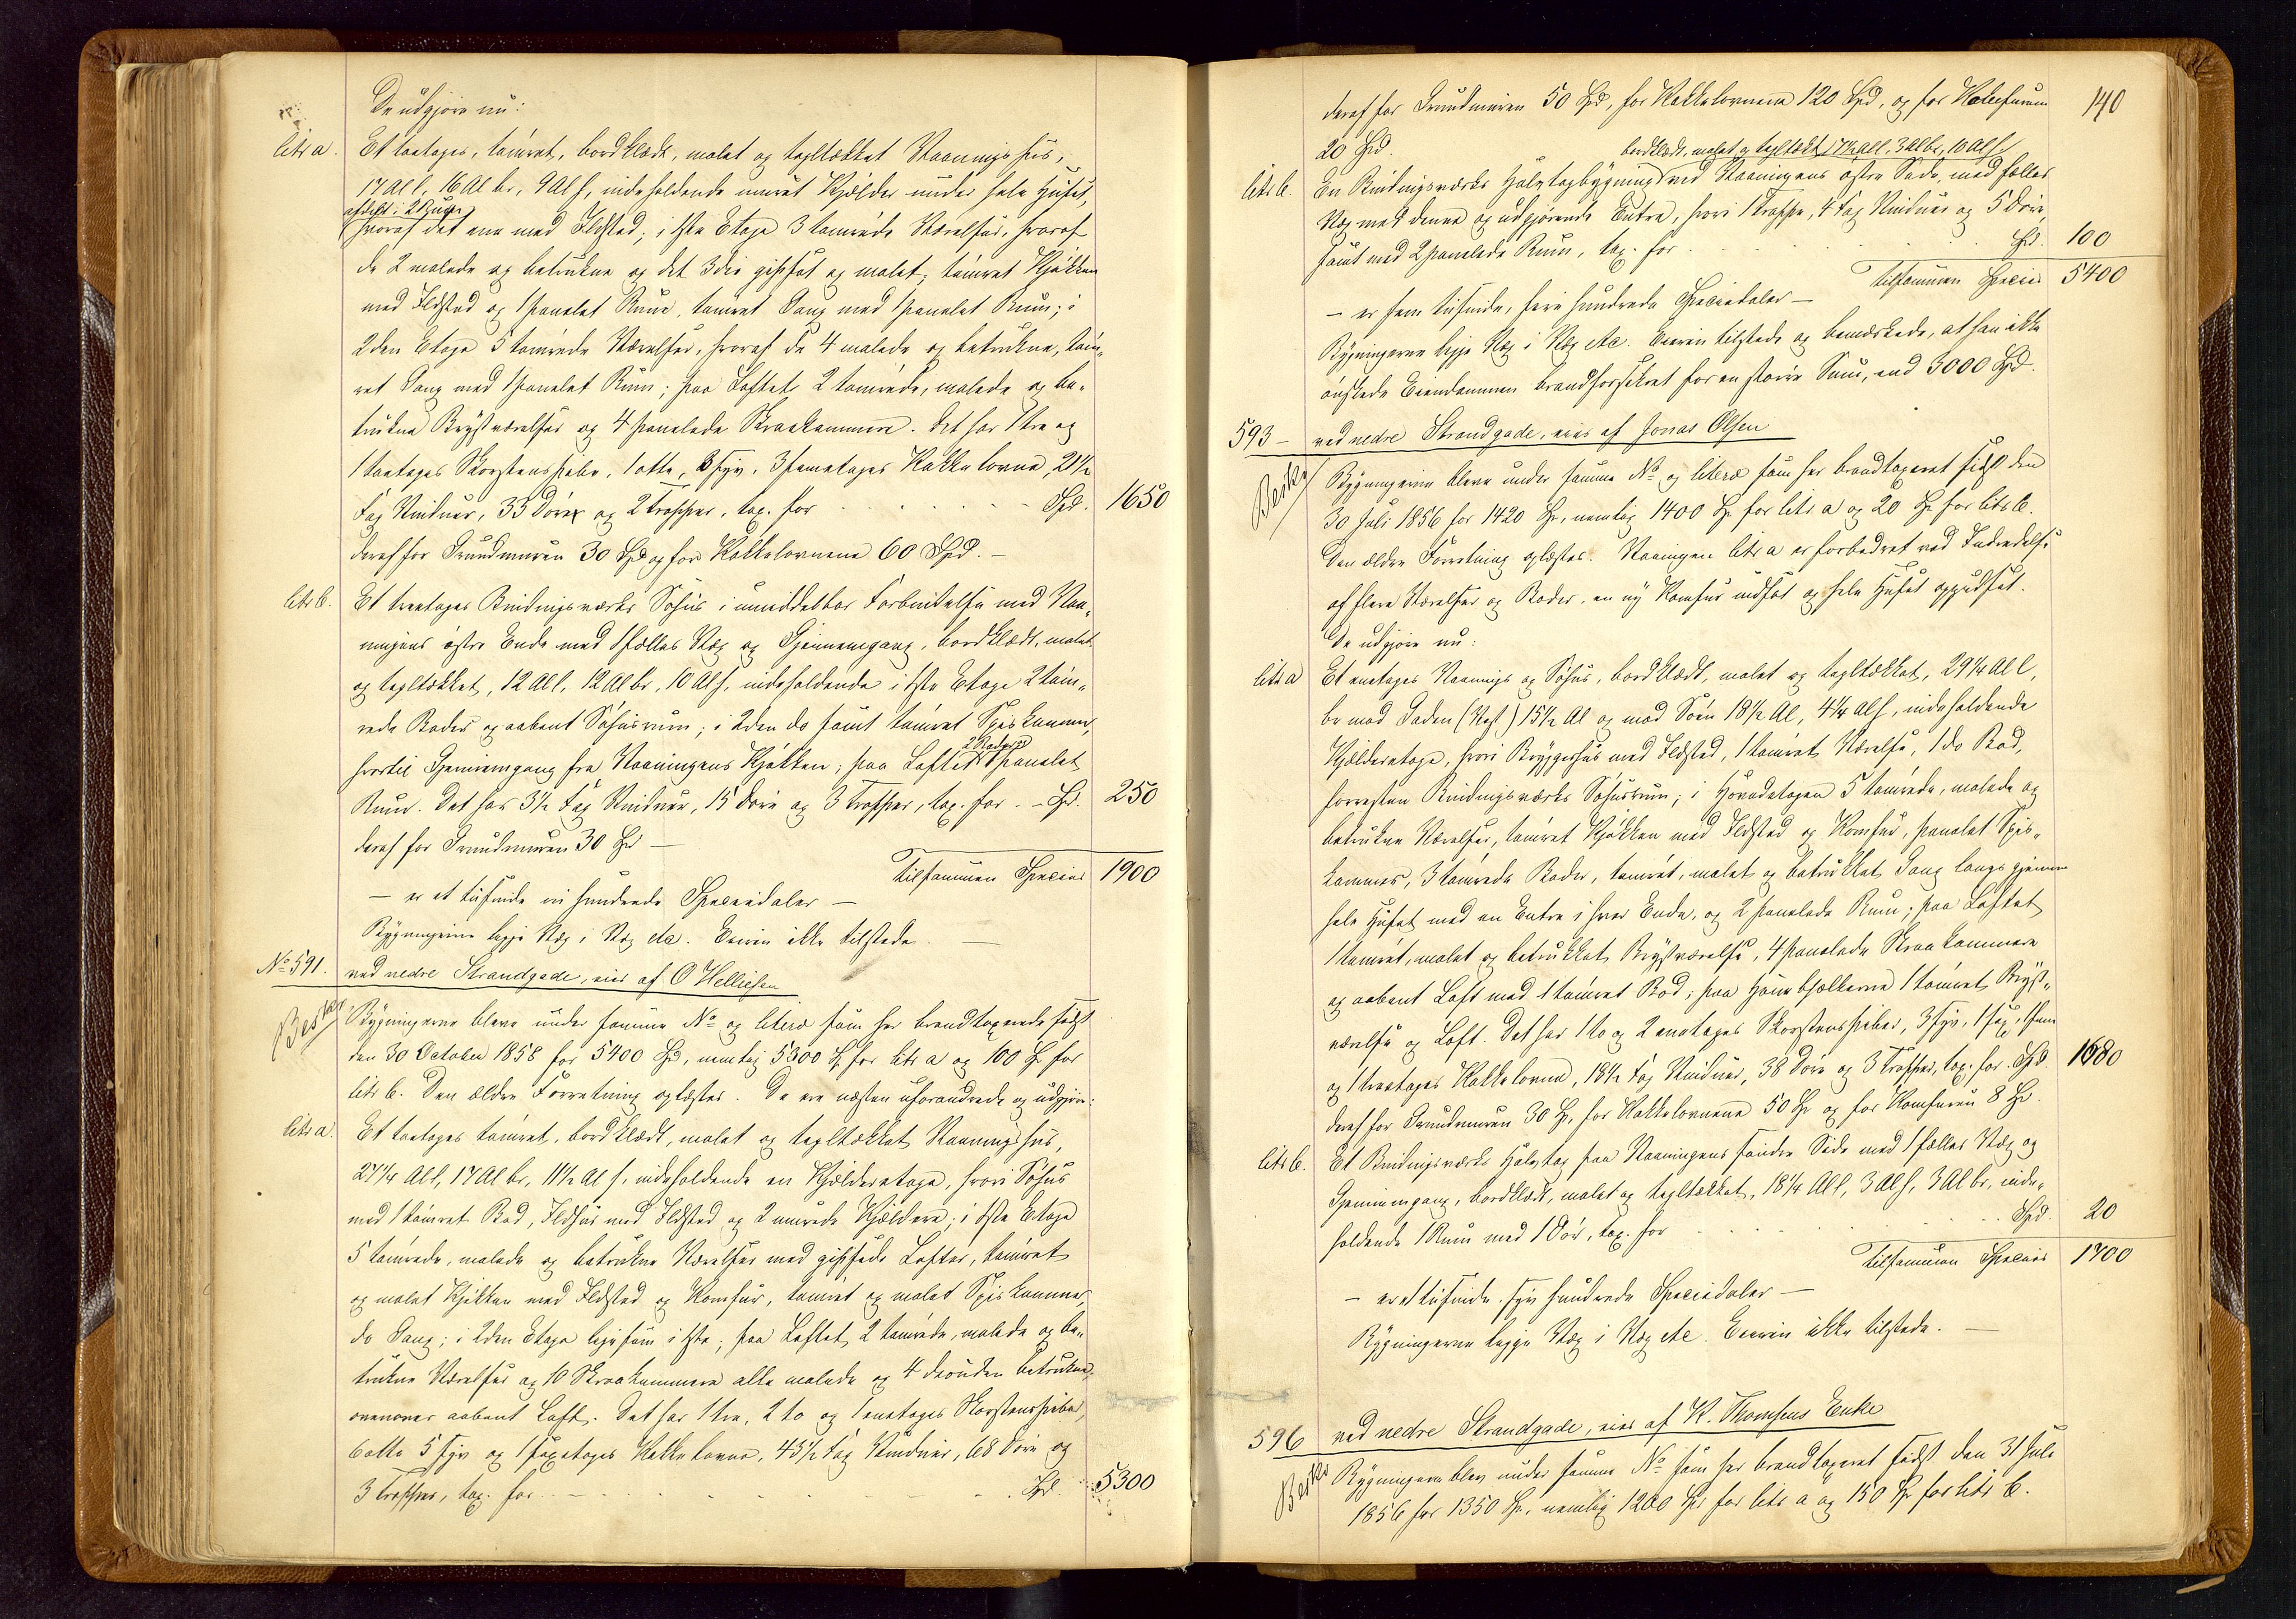 De udgjøre nu:
litr a. Et toetages, tømret, bordklædt, malet og tegltækket Vaaningshus,
17 Al l, 16 Al br, 9 Al h, indeholdende muret Kjelder under hele Huset,
afdelt i 2 Rum,
hvoraf det ene med Ildsted; i 1ste Etage 3 tømrede Værelser, hvoraf
de 2 malede og betrukne og det 3die gipset og malet, tømret Kjøkken
med Ildsted og 1 panelet Rum, tømret Gang med 1 panelet Rum; i
2den Etage 5 tømrede Værelser, hvoraf de 4 malede og betrukne, tøm-
ret Gang med 1 panelet Rum; paa Loftet 2 tømrede, malede og be-
trukne Brystværelser og 4 panelede Skraakammere. Det har 1 tre og
1 toetages Skorstenspibe, 1 otte, 3 syv, 3 femetages Kakkelovne, 21½
Fag Vinduer, 33 Døre og 2 Trapper, tax. for Spd. 1650
deraf for Grundmuren 30 Spd og for Kakkelovnene 60 Spd. –
litr b. Et treetages Bindingsværks Søhus i umiddelbar Forbindelse med Vaa-
ningens østre Ende med 1 fælles Væg og Gjennemgang, bordklædt, malet
og tegltækket, 12 Al l, 12 Al br, 10 Al h, indeholdende i 1ste Etage 2 tøm-
rede Boder og aabent Søhusrum; i 2den do samt tømret Spiskammer,
hvortil Gjennemgang fra Vaaningens Kjøkken; paa Loftet 2 Boder 1 panelet
Rum. Det har 3½ Fag Vinduer, 15 Døre og 3 Trapper, tax. for – Spd. 250
deraf for Grundmuren 30 Spd –
Tilsammen Species 1900
– er et tusinde ni hundrede Speciedaler –
Bygningerne ligge Væg i Væg etc. Eieren ikke tilstede. –
No 591. ved nedre Strandgade, eies af O Helliesen
Beskr Bygningerne bleve under samme No og litera som her brandtaxerede sidst
den 30 October 1858 for 5400 Spd, nemlig 5300 Sp for litr a og 100 Sp for
litr b. Den ældre Forretning oplæstes. De ere næsten uforandrede og udgjøre:
litr a. Et toetages tømret, bordklædt, malet og tegltækket Vaaningshus,
27¼ Al l, 17 Al br, 11½ Al h, indeholdende en Kjelderetage, hvori Søhus
med 1 tømret Bod, Ildhus med Ildsted og 2 murede Kjeldere; i 1ste Etage
5 tømrede, malede og betrukne Værelser med gipsede Lofter, tømret
og malet Kjøkken med Ildsted og Komfur, tømret og malet Spiskammer,
do Gang; i 2den Etage ligesom i 1ste; paa Loftet 2 tømrede, malede og be-
trukne Værelser og 10 Skraakammere alle malede og 4 desuden betrukne,
ovenover aabent Loft. Det har 1 tre, 2 to og 1 enetages Skorstenspibe,
6 otte 5 syv og 1 sexetages Kakkelovne, 45½ Fag Vinduer, 68 Døre og
3 Trapper, tax. for Spd. 5300
deraf for Grundmuren 50 Spd, for Kakkelovnene 120 Spd, og for Komfuren 140
20 Spd.
bordklædt, malet og tegltækket, 7½ Al l, 3 Al br, 10 Al h
litr b. En Bindingsværks Halvtagbygning ved Vaaningens østre Side, med fælles
Væg med denne og udgjørende Entre, hvori 1 Trappe, 4 Fag Vinduer og 5 Døre,
samt med 2 panelede Rum, tax. for Spd. 100
Tilsammen Species 5400
– er fem tusinde, fire hundrede Speciedaler –
Bygningerne ligge Væg i Væg etc. Eieren tilstede og bemærkede, at han ikke
ønskede Eiendommen brandforsikret for en større Sum, end 3000 Spd.
593 – ved nedre Strandgade, eies af Jonas Olsen
Beskr Bygningerne bleve under samme No og litera som her brandtaxeret sidst den
30 Juli 1856 for 1420 Sp, nemlig 1400 Sp for litr a og 20 Sp for litr b.
Den ældre Forretning oplæstes. Vaaningen litr a er forbedret ved Indredelse
af flere Værelser og Boder, en ny Komfur indsat og hele Huset oppudset.
De udgjøre nu:
litr a Et enetages Vaanings og Søhus, bordklædt, malet og tegltækket, 29¼ Al l,
br mod Gaden (Vest) 15½ Al og mod Søen 18½ Al, 4¼ Al h, indeholdende
Kjelderetage, hvori Bryggerhus med Ildsted, 1 tømret Værelse, 1 do Bod,
forresten Bindingsværks Søhusrum; i Hovedetagen 5 tømrede, malede og
betrukne Værelser, tømret Kjøkken med Ildsted og Komfur, panelet Spis-
kammer, 3 tømrede Boder, tømret, malet og betrukket Gang langs gjennem
hele Huset med en Entre i hver Ende, og 2 panelede Rum; paa Loftet
1 tømret, malet og betrukket Brystværelse, 4 panelede Skraakammere
og aabent Loft med 1 tømret Bod; paa Hanebjelkerne 1 tømret Bryst-
værelse og Loft. Det har 1 to og 2 enetages Skorstenspiber, 3 syv, 1 sex, 1 fem
og 1 treetages Kakkelovne, 18½ Fag Vinduer, 38 Døre og 3 Trapper, tax. for Spd. 1680
deraf for Grundmuren 30 Sp, for Kakkelovnene 50 Sp og for Komfuren 8 Sp.
litr b. Et Bindingsværks Halvtag paa Vaaningens søndre Side med 1 fælles Væg og
Gjennemgang, bordklædt, malet og tegltækket, 18¼ Al l, 3 Al h, 3 Al br, inde-
holdende 1 Rum med 1 Dør, tax. for Spd. 20
Tilsammen Species 1700
– er et tusinde, syv hundrede Speciedaler –
Bygningerne ligge Væg i Væg etc. Eieren ikke tilstede. –
596 ved nedre Strandgade, eies af K. Thomsens Enke
Beskr Bygningerne blev under samme No som her brandtaxeret sidst den 31 Juli
1856 for 1350 Sp, nemlig 1200 Sp for litr a og 150 Sp for litr b.